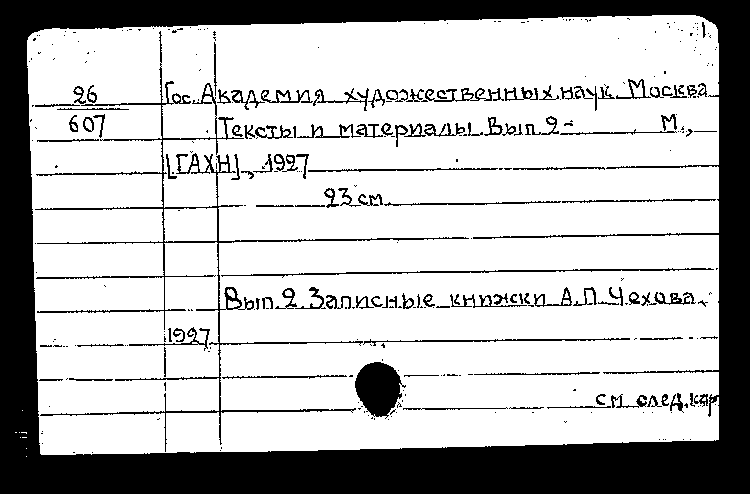 1
26 Гос. Академия художественных наук. Москва
607 Тексты и материалы Вып. 2- М.,
[ГАХН], 1927
23 см.
Вып. 2. Записные книжки А.П. Чехова.
1927
см. след. кар